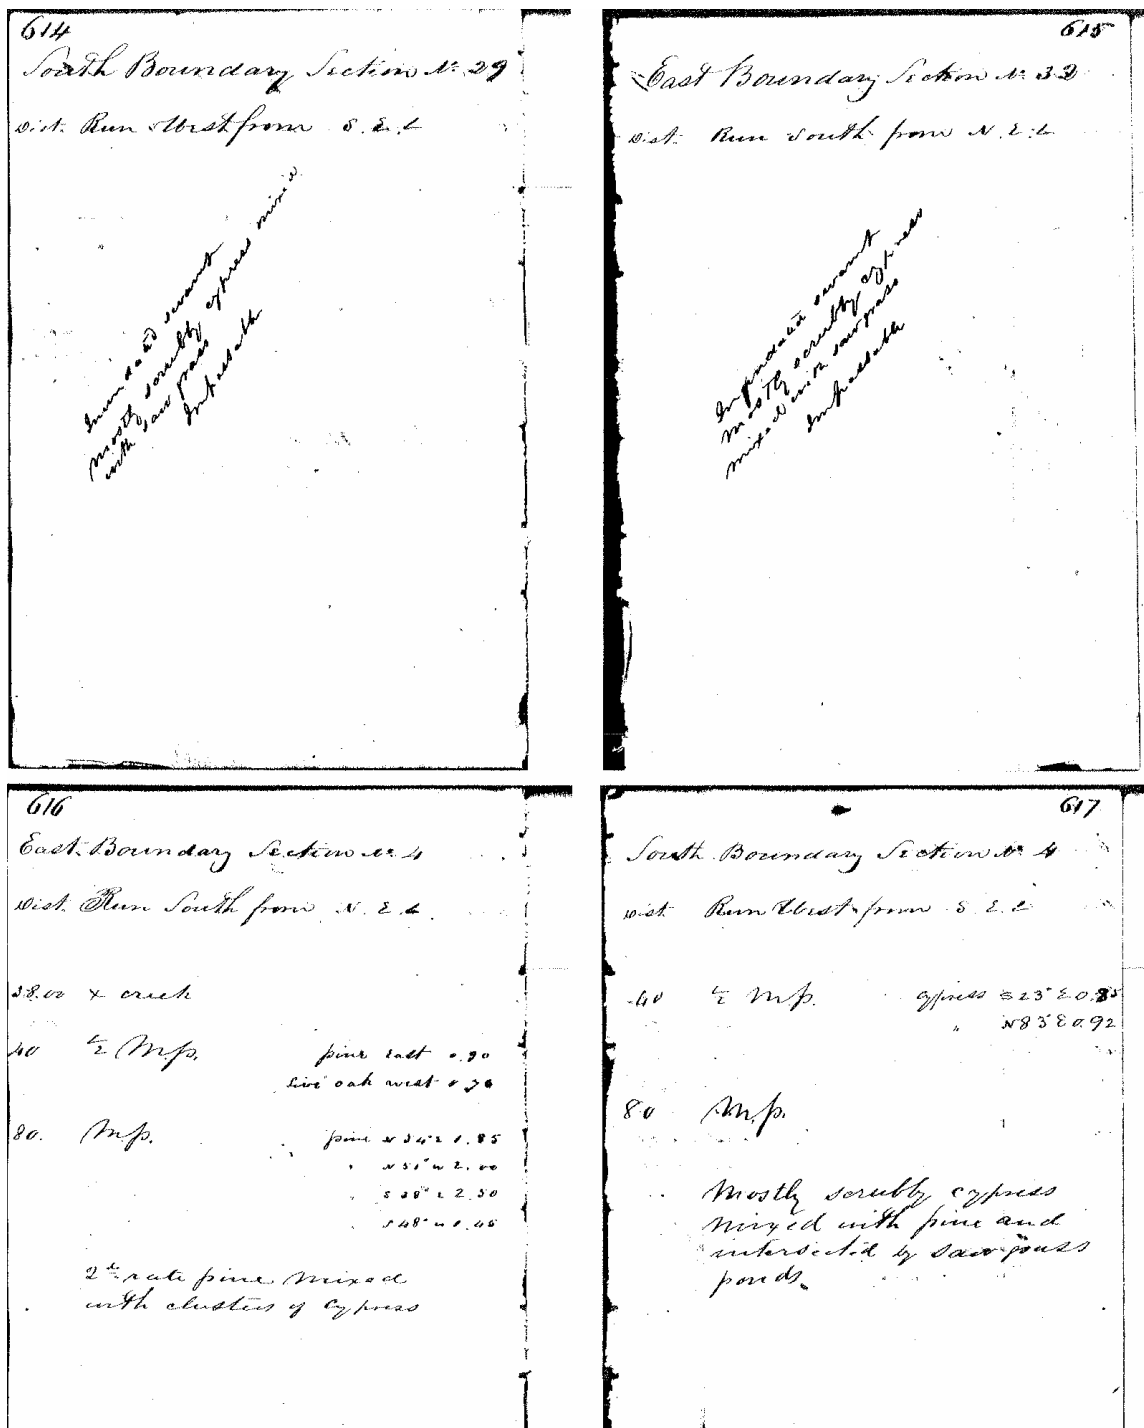 614
South Boundary Section No. 29
Dist. Run West from S. E. C
Inundated savant
mostly scrubby cypress mixed
with saw grass
Impassable
615
East Boundary Section No. 32
Dist. Run South from N. E. C
Inundated savant
mostly scrubby cypress
mixed with saw grass
Impassable
616
East Boundary Section No. 4
Dist. Run South from N. E. C.
38.00 x creek
40 ½ M.p. pine East 0.90
live oak west
80. M.p. pine N 34 E 1.85
" N 51° W 2.00
" S 38° E 2.50
" S 48° W
2d rate pine mixed
with clusters of Cypress
617
South Boundary Section No. 4
Dist Run West from S. E. C
40 ½ M.p. cypress S 23° E 0.85
" N 83° E 0.92
80 M.p.
Mostly scrubby cypress
mixed with pine and
intersected by saw grass
ponds.